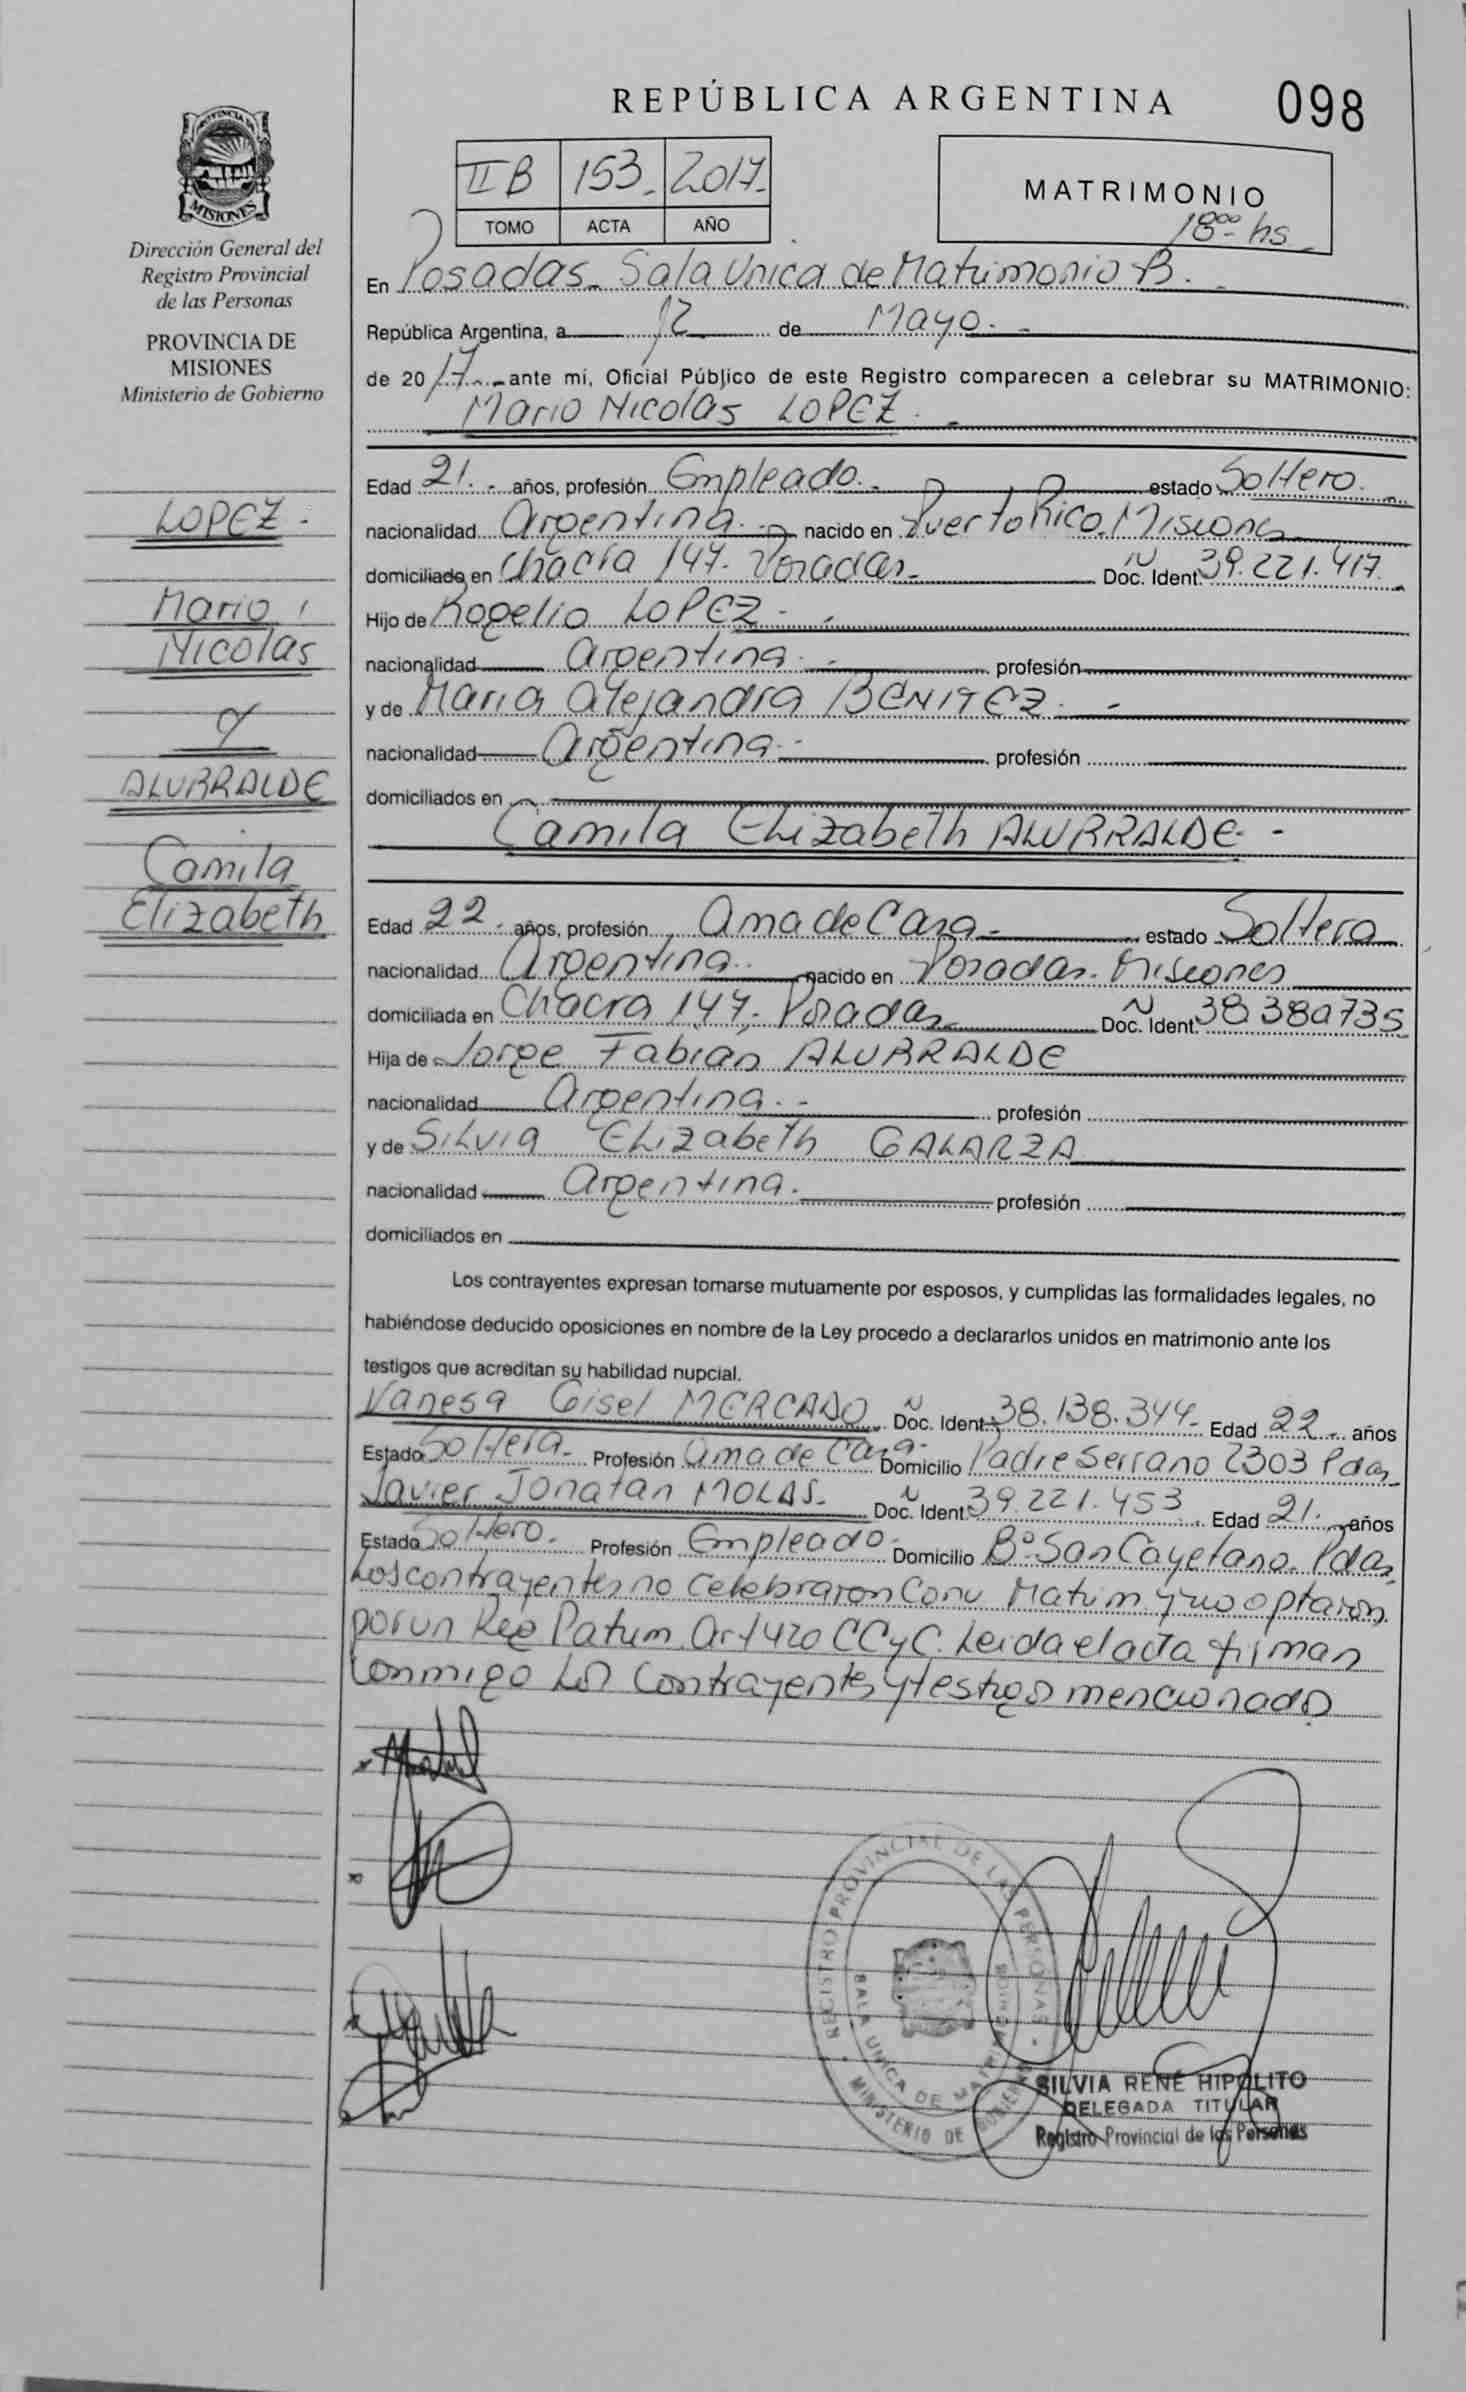 REPÚBLICA ARGENTINA
098
II B 153 - 2017 -
TOMO ACTA AÑO
MATRIMONIO
18 00 hs
MISIONES
Dirección General del
Registro Provincial
de las Personas
PROVINCIA DE
MISIONES
Ministerio de Gobierno
LOPEZ -
Mario
Nicolas
y
ALURRALDE
Camila
Elizabeth
En Posadas - Sala Unica de Matrimonio B. -
República Argentina, a 12 de Mayo. -
de 2017 - ante mí, Oficial Público de este Registro comparecen a celebrar su MATRIMONIO:
Mario Nicolas LOPEZ. -
Edad 21. - años, profesión Empleado. - estado Soltero. -
nacionalidad Argentina. - nacido en Puerto Rico. Misiones
domiciliado en Chacra 147. Posadas - Doc. Ident. 39.221.417.
Hijo de Rogelio LOPEZ. -
nacionalidad Argentina. - profesión
y de Maria Alejandra BENITEZ. -
nacionalidad Argentina. - profesión
domiciliados en
Camila Elizabeth ALURRALDE. -
Edad 22. años, profesión Ama de Casa - estado Soltera
nacionalidad Argentina. nacido en Posadas. Misiones
domiciliada en Chacra 147. Posadas Doc. Ident. 38380735
Hija de Jorge Fabian ALURRALDE
nacionalidad Argentina. - profesión
y de Silvia Elizabeth GALARZA
nacionalidad Argentina. profesión
domiciliados en
Los contrayentes expresan tomarse mutuamente por esposos, y cumplidas las formalidades legales, no
habiéndose deducido oposiciones en nombre de la Ley procedo a declararlos unidos en matrimonio ante los
testigos que acreditan su habilidad nupcial.
Vanesa Gisel MERCADO Doc. Ident. 38.138.344 - Edad 22 - años
Estado Soltera - Profesión Ama de Casa - Domicilio Padre Serrano 2303 Pdas -
Javier Jonatan MOLAS - Doc. Ident. 39.221.453 Edad 21. años
Estado Soltero. Profesión Empleado. Domicilio Bº San Cayetano. Pdas.
Los contrayentes no celebraron Conv Matrim. y no optaron
por un Reg Patrim. Art 420 CCyC. Leida el acta firman
Conmigo los Contrayentes y testigos mencionados
REGISTRO PROVINCIAL DE LAS PERSONAS
SALA UNICA DE MATRIMONIO
MINISTERIO DE GOBIERNO
SILVIA RENÉ HIPÓLITO
DELEGADA TITULAR
Registro Provincial de las Personas